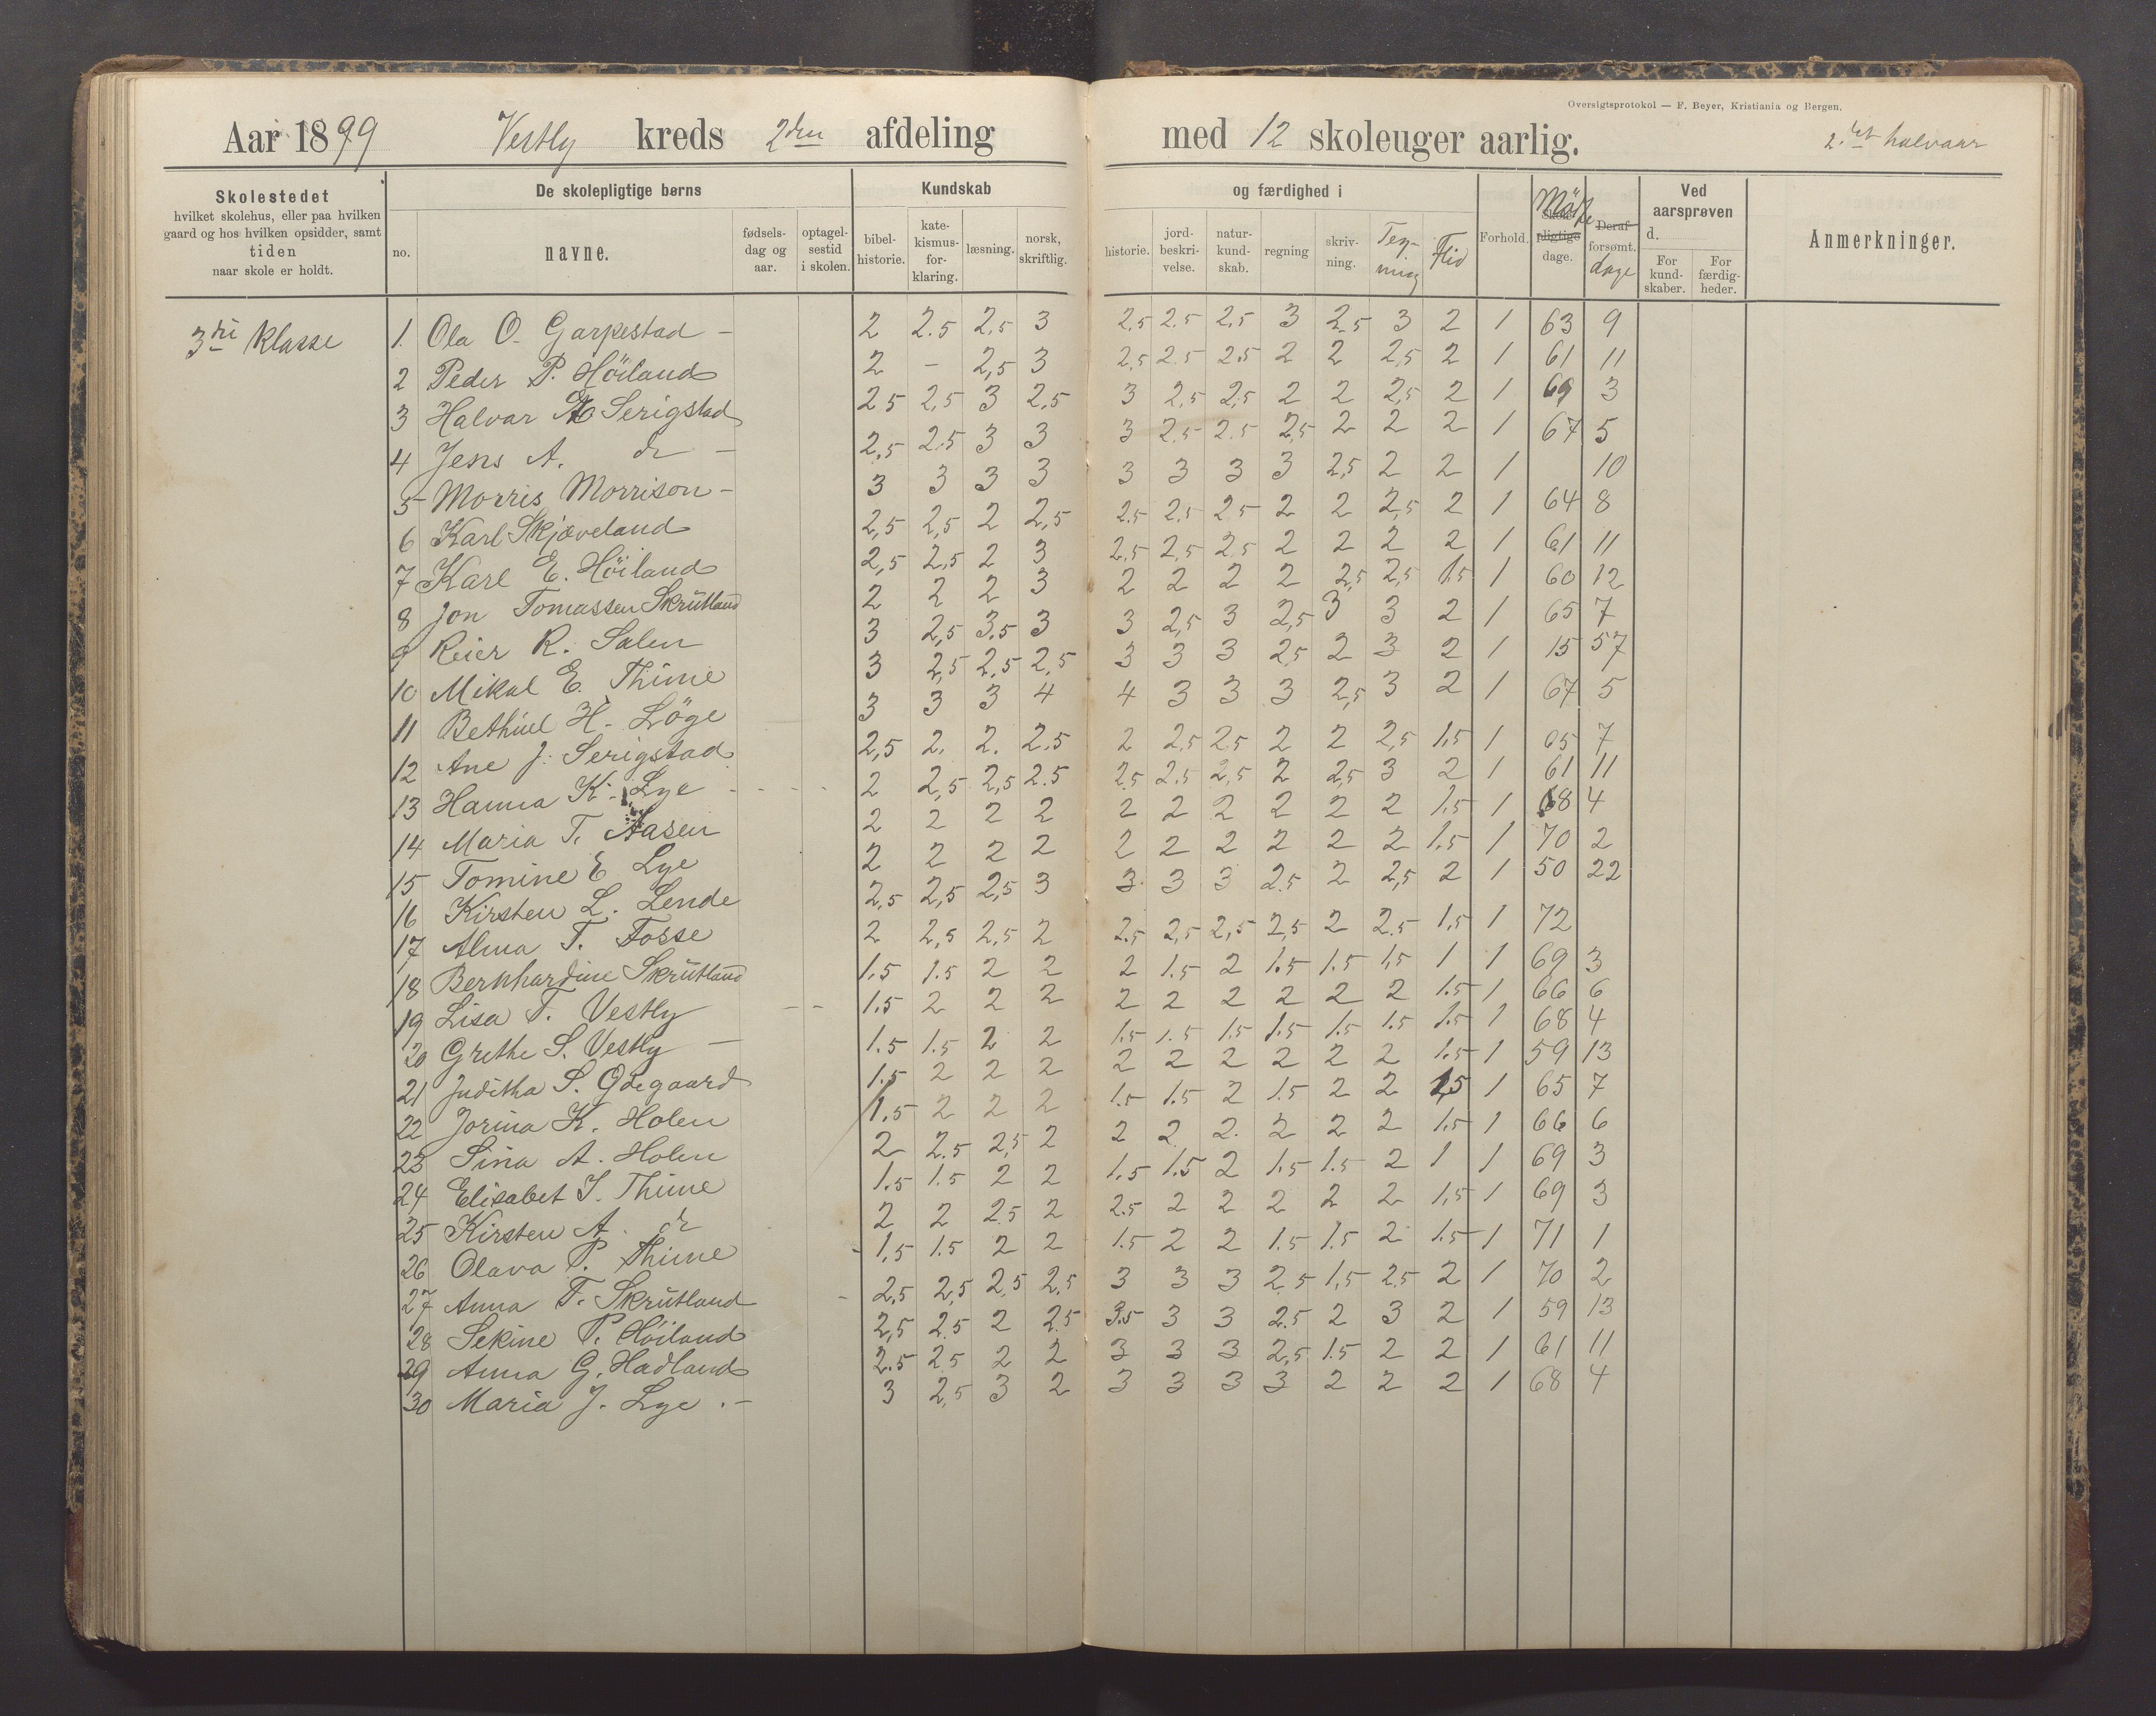 Oversigtsprotokol — F. Beyer, Kristiania og Bergen.
Aar 1899 Vestly kreds 2den afdeling med 12 skoleuger aarlig. 2.det halvaar
Skolestedet
hvilket skolehus, eller paa hvilken
gaard og hos hvilken opsidder, samt
tiden
naar skole er holdt.
De skolepligtige børns
no.
navne.
fødsels-
dag og
aar.
optagel-
sestid
i skolen.
Kundskab
bibel-
historie.
kate-
kismus-
for-
klaring.
læsning.
norsk,
skriftlig.
og færdighed i
historie.
jord-
beskri-
velse.
natur-
kund-
skab.
regning
skriv-
ning.
Teg-
ning
Flid
Forhold.
Möde
skole-
pligtige
dage.
Deraf
forsømt.
dage
Ved
aarsprøven
d.
For
kund-
skaber.
For
færdig-
heder.
Anmerkninger.
3die Klasse
1. Ola O. Garpestad - 2 2.5 2,5 3 2,5 2.5 2,5 3 2,5 3 2 1 63 9
2 Peder P. Höiland 2 - 2,5 3 2,5 2.5 2.5 2 2 2,5 2 1 61 11
3 Halvar Serigstad 2 5 2,5 3 2,5 3 2,5 2,5 2 2 2,5 2 1 69 3
4 Jens A. do - 2,5 2.5 3 3 3 2.5 2.5 2,5 2 2 2 1 67 5
5 Morris Morrison - 3 3 3 3 3 3 3 3 2,5 2 2 1 10
6 Karl Skjæveland 2,5 2,5 2 2,5 2.5 2.5 2.5 2 2 2,5 2 1 64 8
7 Karl E. Höiland 2,5 2,5 2 3 2.5 2,5 2,5 2 2 2 2 1 61 11
8 Jon Tomassen Skrutland 2 2 2 3 2 2 2 2 2,5 2,5 1.5 1 60 12
9 Reier R. Salen 3 2,5 3.5 3 3 2,5 3 2,5 3 3 2 1 65 7
10 Mikal E. Thime 3 2,5 2,5 2,5 3 3 3 2,5 2 3 2 1 15 57
11 Bethuel H. Löge 3 3 3 4 4 3 3 3 2,5 3 2 1 67 5
12 Ane J. Serigstad 2,5 2. 2. 2.5 2 2,5 2.5 2 2 2,5 1,5 1 65 7
13 Hanna K. Lye - - - - 2 2,5 2,5 2.5 2.5 2.5 2,5 2 2,5 3 2 1 61 11
14 Maria T. Aasen 2 2 2 2 2 2 2 2 2 2 1,5 1 68 4
15 Tomine E Lye 2 2 2 2 2 2 2 2 2 2 1.5 1 70 2
16 Kirsten L. Lende 2,5 2,5 2,5 3 3 3 3 2.5 2 2,5 2 1 50 22
17 Alma T. Fosse 2 2,5 2,5 2 2.5 2,5 2,5 2,5 2 2.5 1.5 1 72
18 Bernhardine Skrutland 1.5 1.5 2 2 2 1.5 2 1.5 1.5 1,5 1 1 69 3
19 Lisa T. Vestly - - 1.5 2 2 2 2 2 2 2 2 2 1.5 1 66 6
20 Grethe S. Vestly - 1.5 1.5 2 2 1.5 1.5 1.5 1.5 1.5 1.5 1.5 1 68 4
21 Juditha S. Ödegaard 1.5 2 2 2 2 2 2 2 2 2 1.5 1 59 13
22 Jorina K. Holen 1.5 2 2 2 1.5 1.5 2 1.5 2 2 1,5 1 65 7
23 Sina A. Holen 2 2.5 2,5 2 2 2 2. 2 2 2 1.5 1 66 6
24 Elisabet S. Thime 1.5 1.5 2 2 1.5 1.5 2 1.5 1.5 2 1 1 69 3
25 Kirsten A. do 2 2 2.5 2 2.5 2 2 2 2 2 1,5 1 69 3
26 Olava P. Thime - 1,5 1.5 2 2 1.5 2 2 1.5 1.5 2 1.5 1 71 1
27 Anna T. Skrutland - 2,5 2,5 2,5 2,5 3 3 3 2,5 1,5 2,5 2 1 70 2
28 Sekine P. Höiland 2,5 2.5 2 2.5 3.5 3 3 2.5 2 3 2 1 59 13
29 Anna G. Hadland 2.5 2 5 2 2 3 3 3 2,5 1.5 2 2 1 61 11
30 Maria J. Lye . - 3 2,5 3 2 3 3 3 3 2 2 2 1 68 4